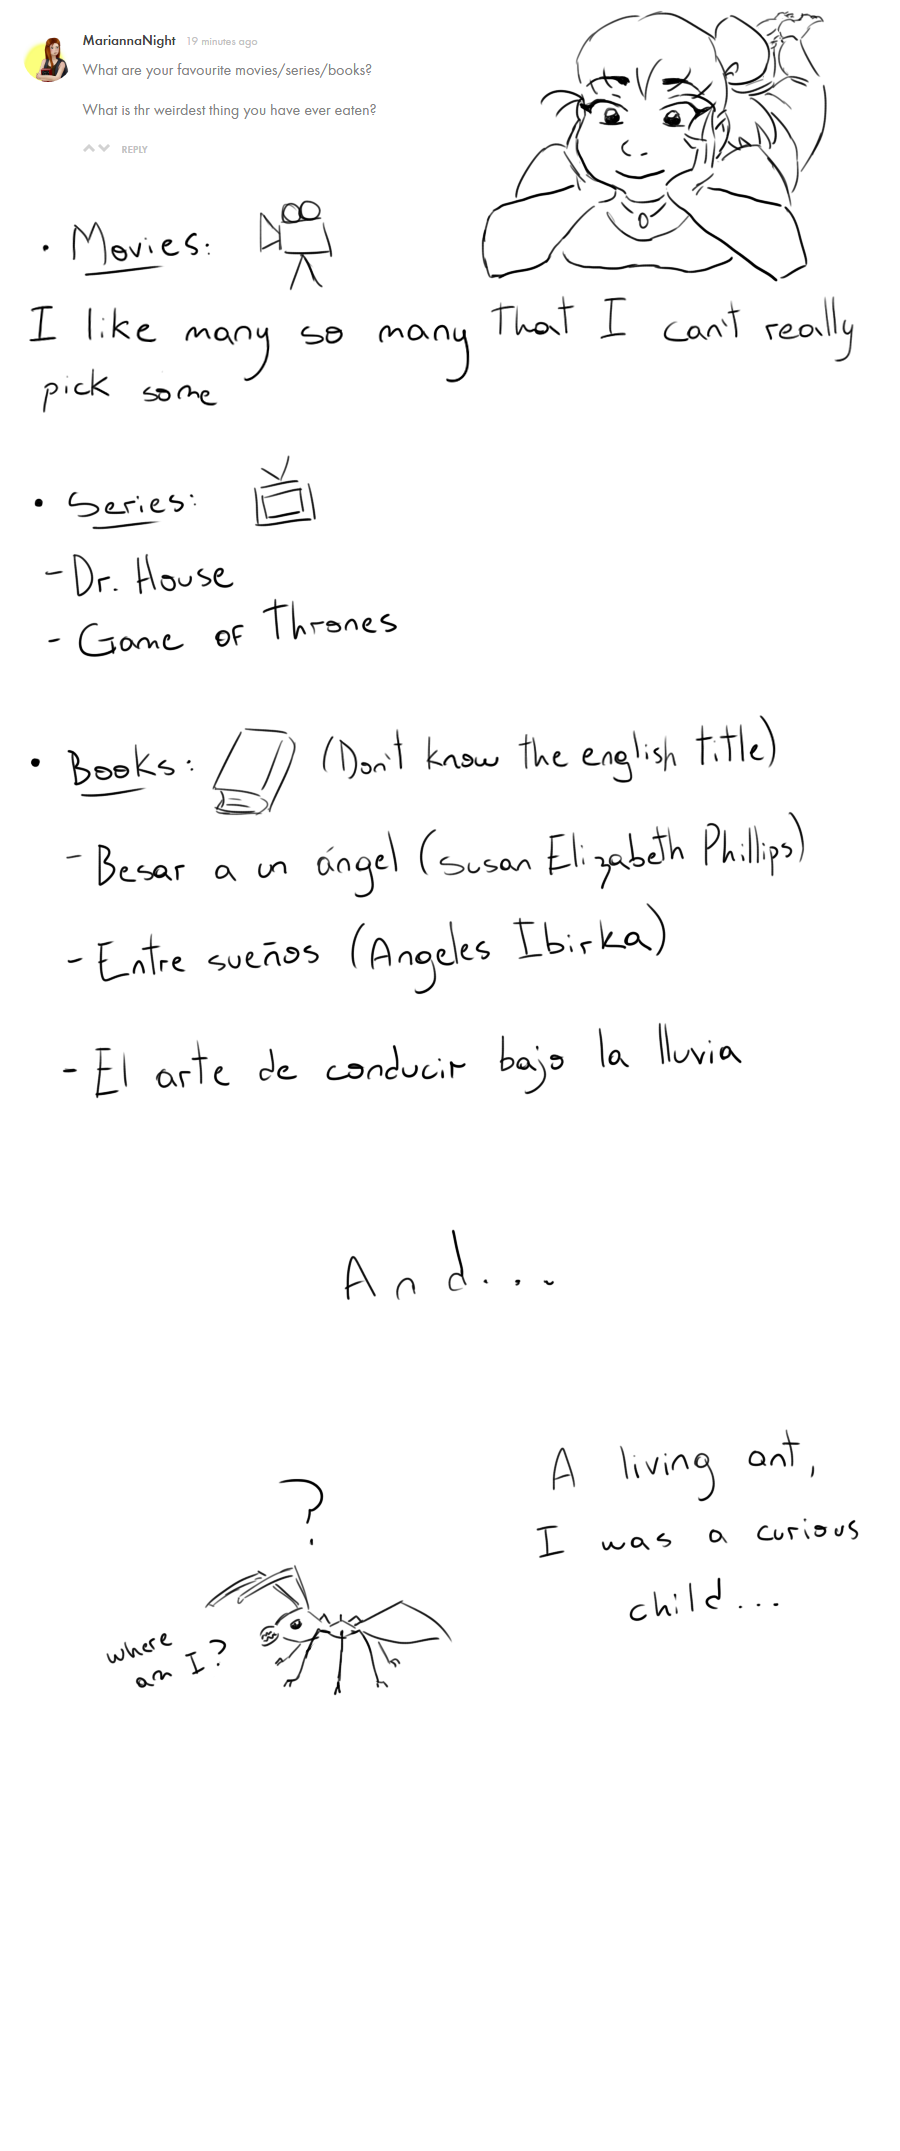 MariannaNight 19 minutes ago
What are your favourite movies/series/books?
What is thr weirdest thing you have ever eaten?
REPLY
• Movies:
I like many so many that I can't really
pick some
• Series:
- Dr. House
- Game of Thrones
• Books: (Don't know the english title)
- Besar a un ángel (Susan Elizabeth Phillips)
- Entre sueños (Angeles Ibirka)
- El arte de conducir bajo la lluvia
And...
A living ant,
I was a curious
child...
?
where
am I?